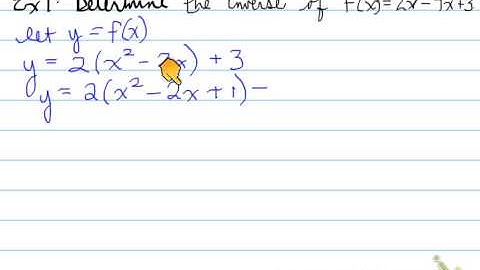 Ex 1: Determine the inverse of f(x)=2x²-4x+3
let y = f(x)
y = 2(x² - 2x) + 3
y = 2(x² - 2x + 1) -